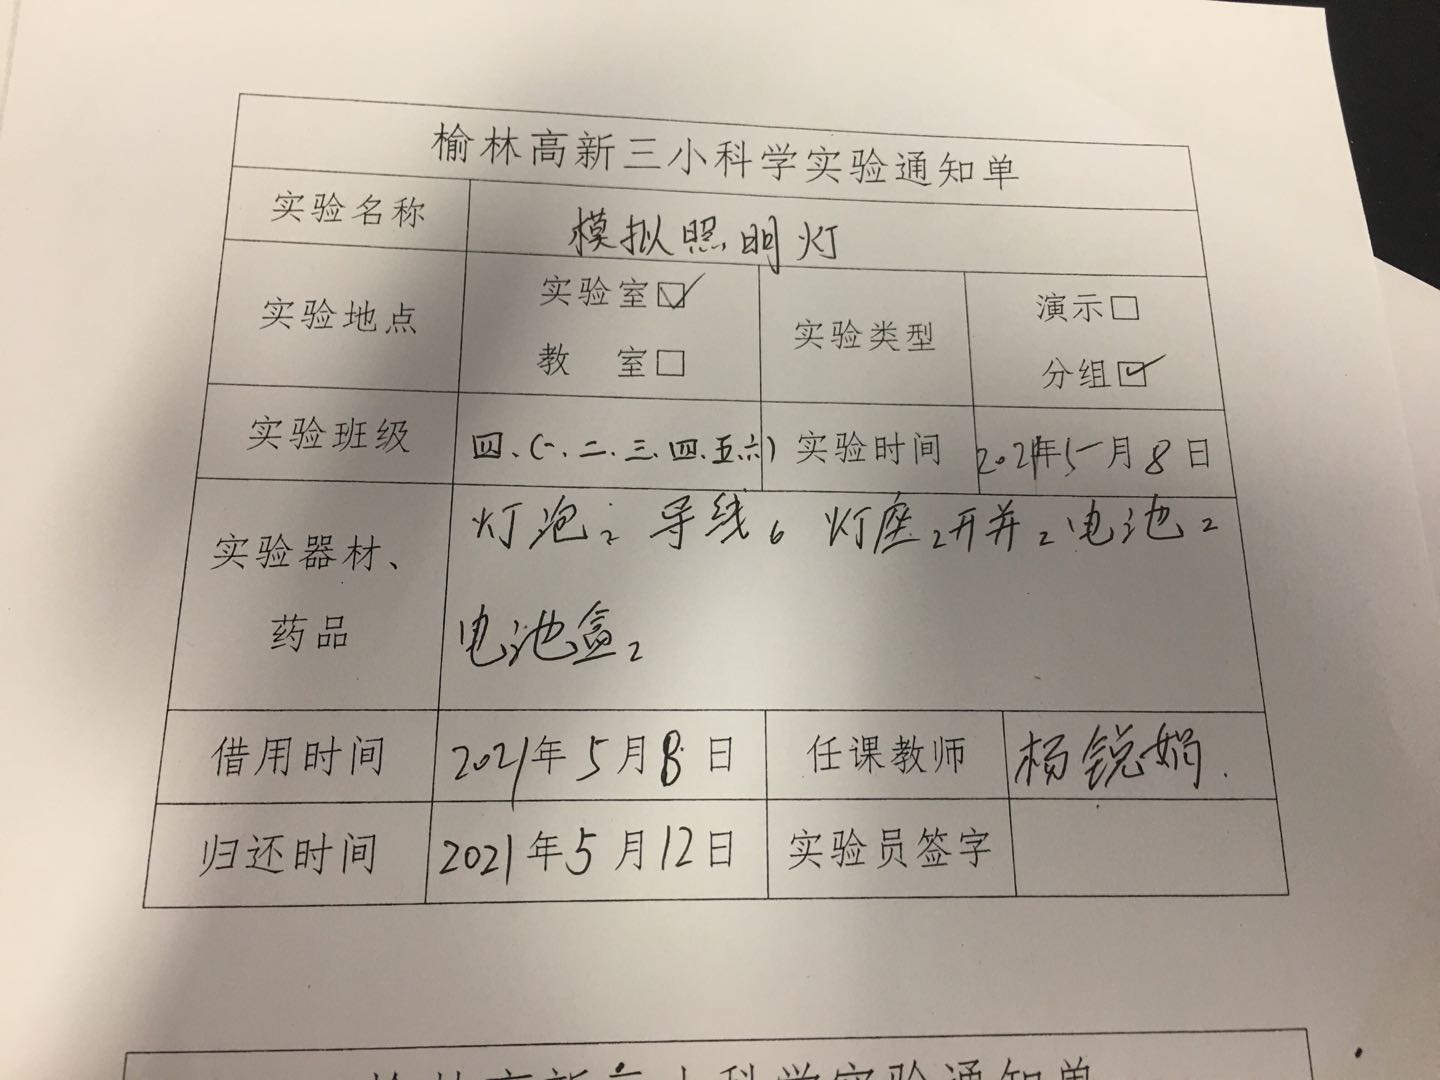 榆林高新三小科学实验通知单
实验名称 模拟照明灯
实验地点 实验室☑ 教 室□ 实验类型 演示□ 分组☑
实验班级 四、(一、二、三、四、五、六) 实验时间 2021年5月8日
实验器材、药品 灯泡2 导线6 灯座2 开并2 电池2
电池盒2
借用时间 2021年5月8日 任课教师 杨锐娟.
归还时间 2021年5月12日 实验员签字
榆林高新三小科学实验通知单